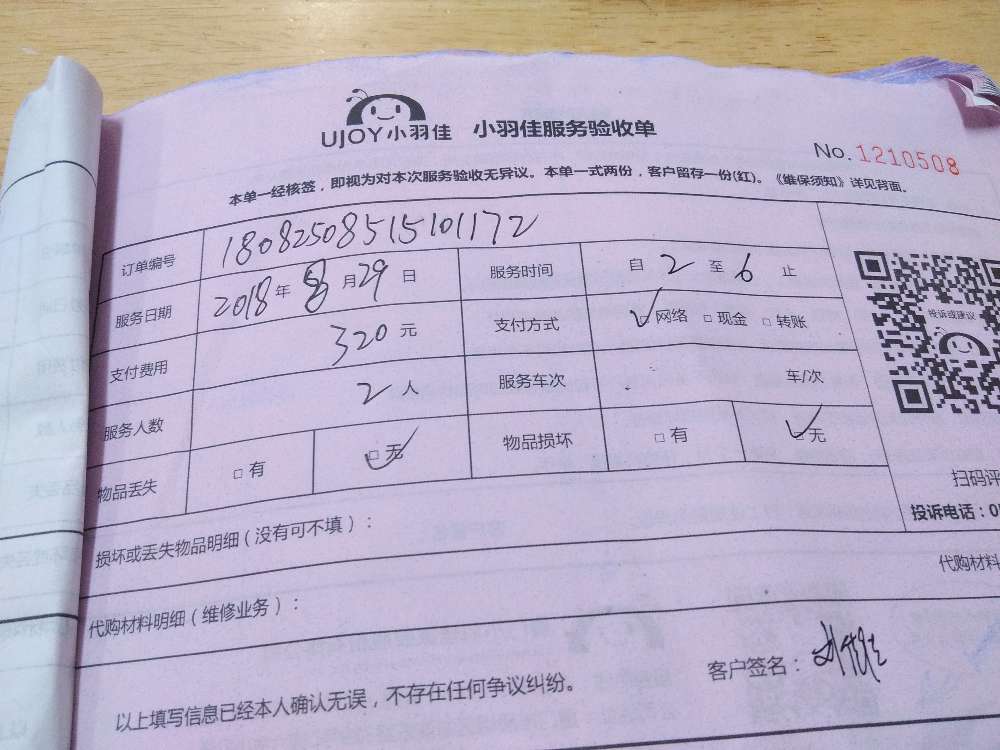 UJOY小羽佳 小羽佳服务验收单
No.1210508
本单一经核签，即视为对本次服务验收无异议。本单一式两份，客户留存一份(红)。《维保须知》详见背面。
订单编号 18082508515101172
服务日期 2018年8月29日 服务时间 自2至6止
投诉或建议
支付费用 320元 支付方式 □网络 □现金 □转账
服务人数 2人 服务车次 车/次
物品丢失 □有 □无 物品损坏 □有 □无
扫码评
损坏或丢失物品明细(没有可不填)：
投诉电话：0
代购材料明细(维修业务)：
代购材料
以上填写信息已经本人确认无误，不存在任何争议纠纷。
客户签名：